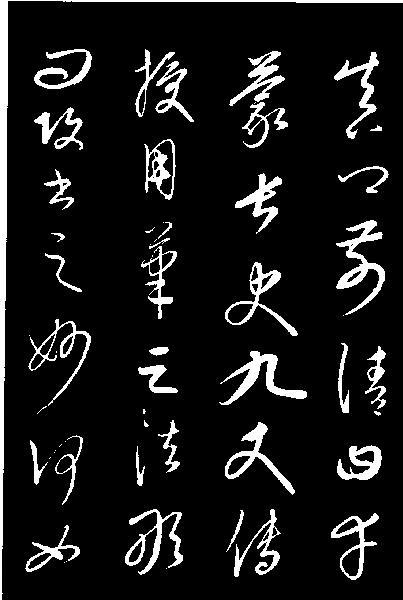 真卿前請曰幸
蒙長史九丈傳
授用筆之法敢
問攻書之妙何如